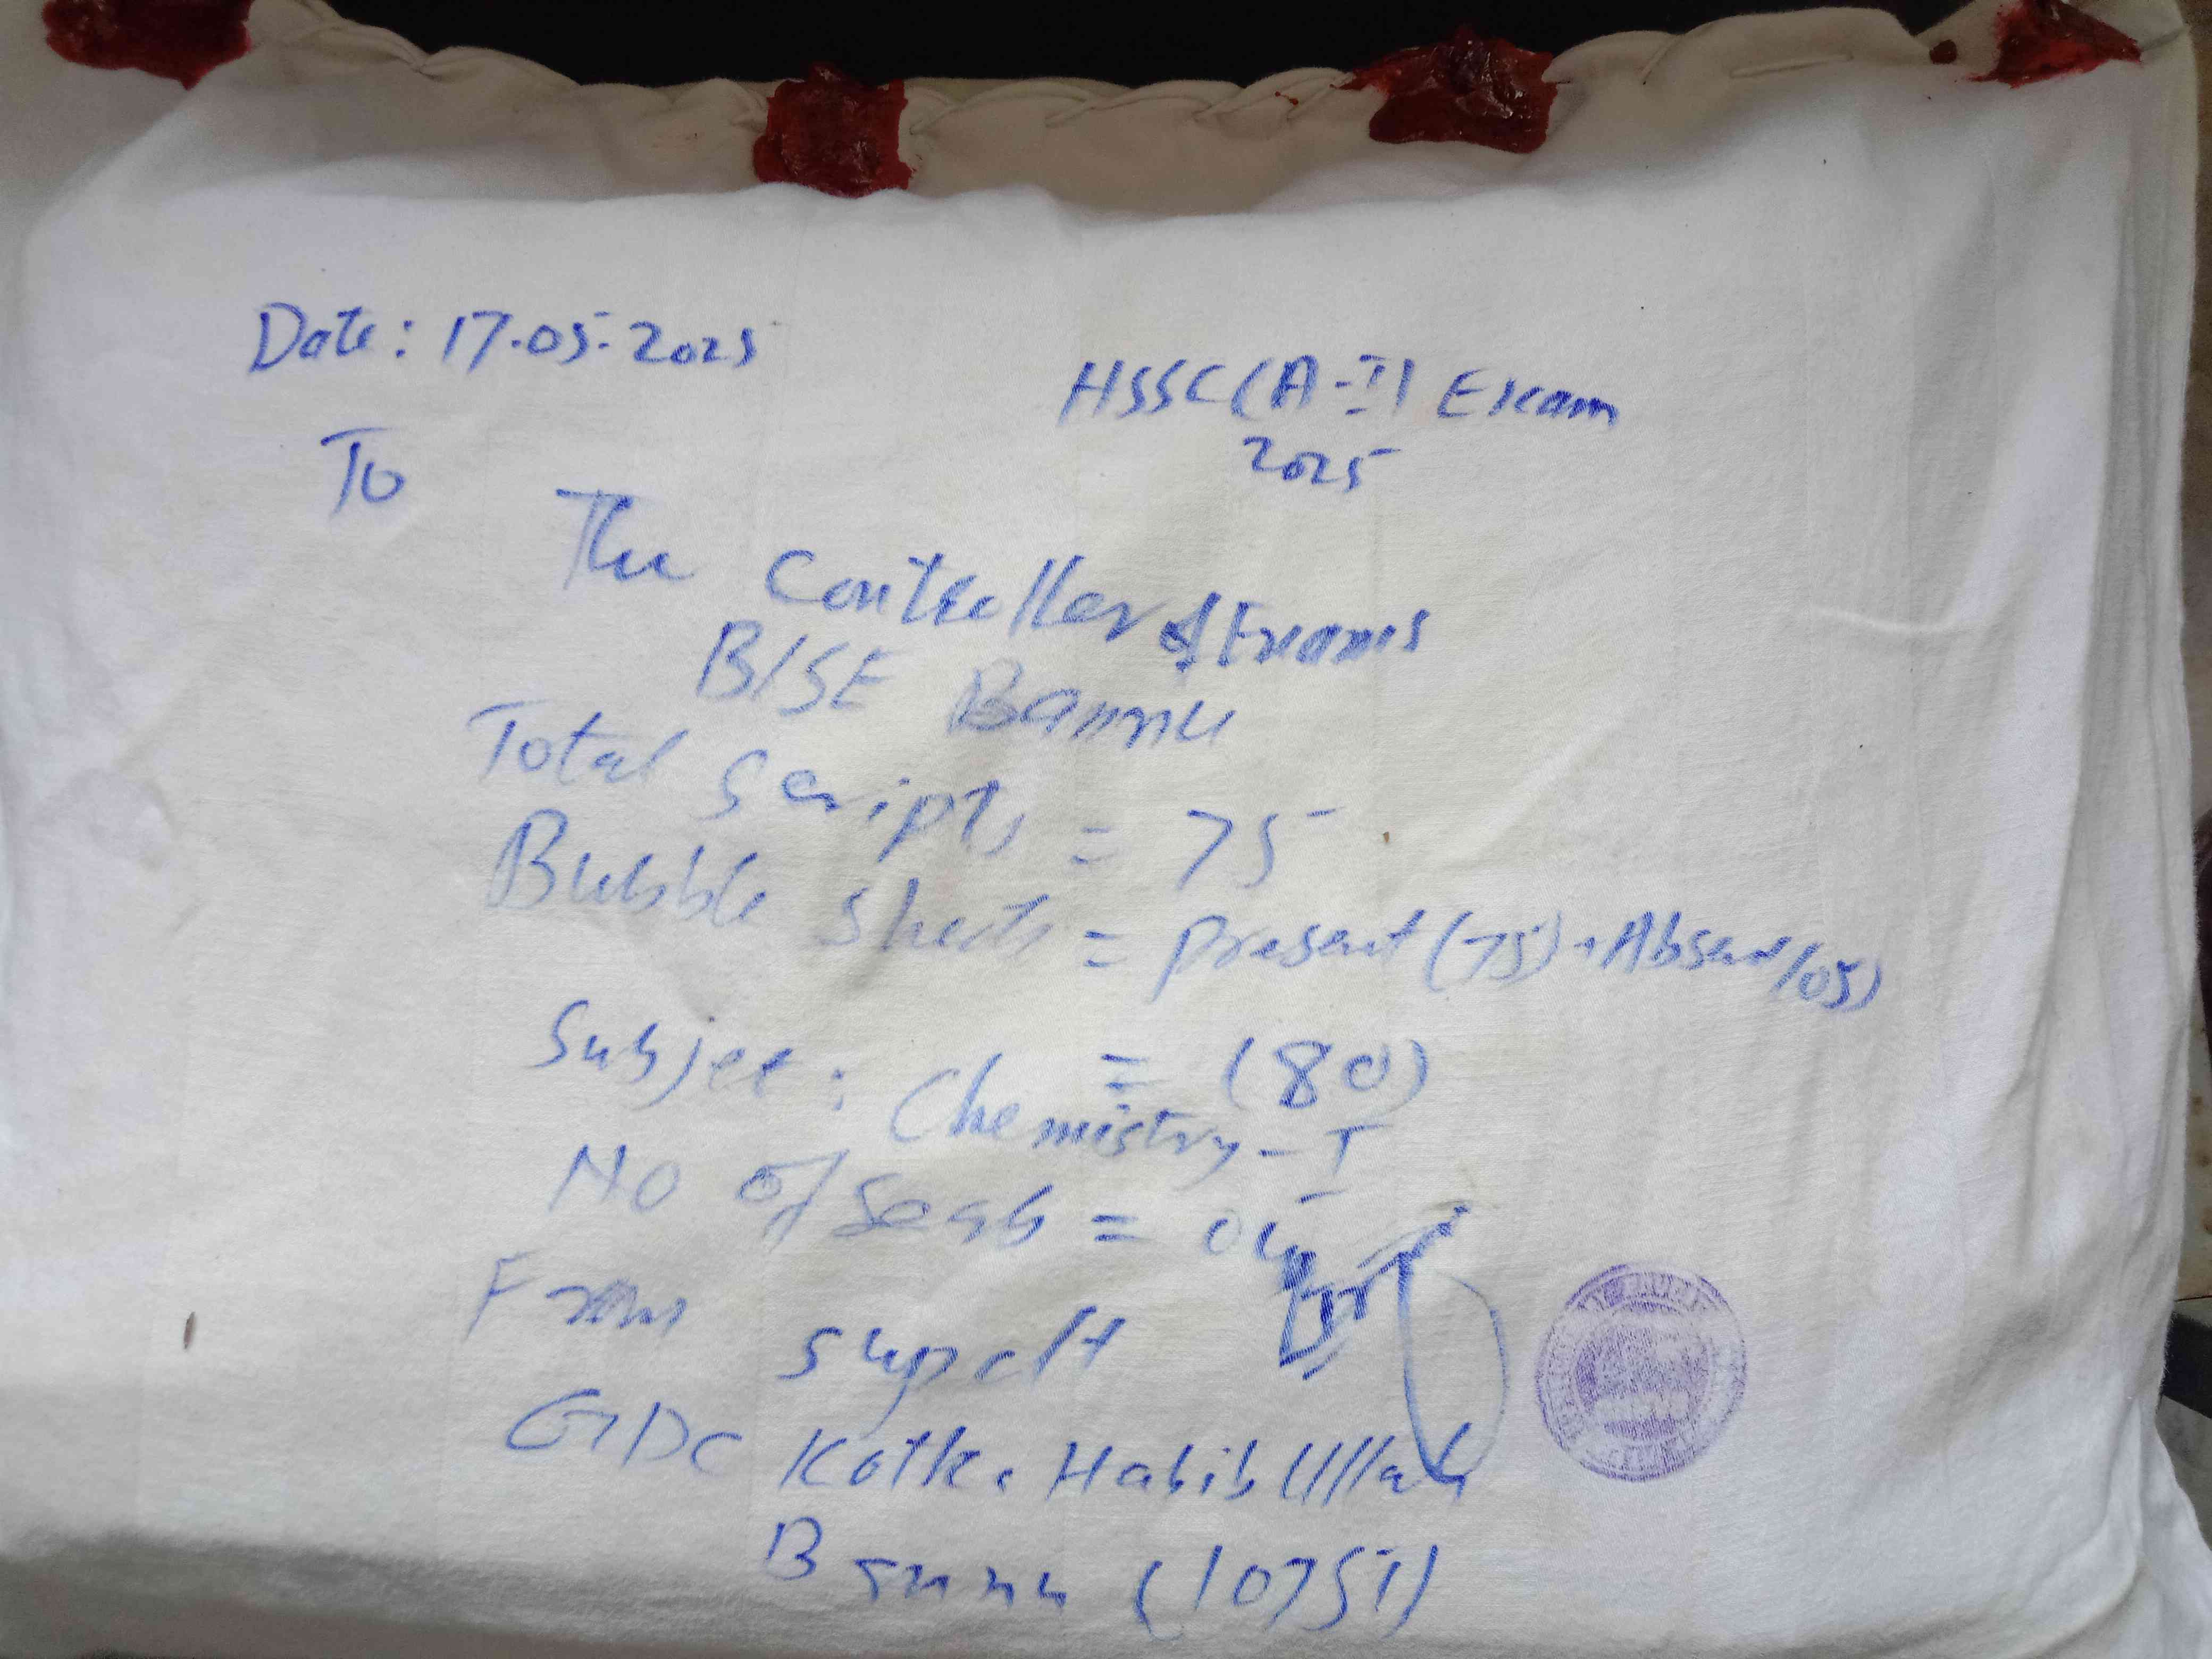 Date: 17.05.2025
HSSC (A-I) Exam
2025
To
The Controller of Exams
BISE Bannu
Total Scripts = 75
Bubble Sheets = Present (75) + Absent (05)
= (80)
Subject: Chemistry-I
No of Seals = 04
From
Supdt
GDC Kotka Habib Ullah
Bannu (10751)